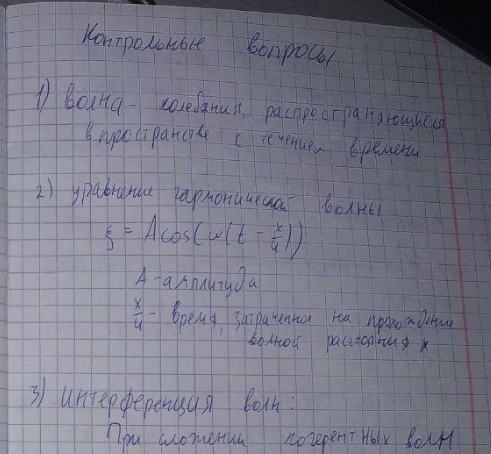 Контрольные вопросы
1) волна - колебания, распространяющиеся
в пространстве с течением времени
2) уравнение гармонической волны
ξ = A cos(ω(t - x/u))
A - амплитуда
x/u - время, затраченное на прохождение
волной расстояния x
3) Интерференция волн:
При сложении когерентных волн